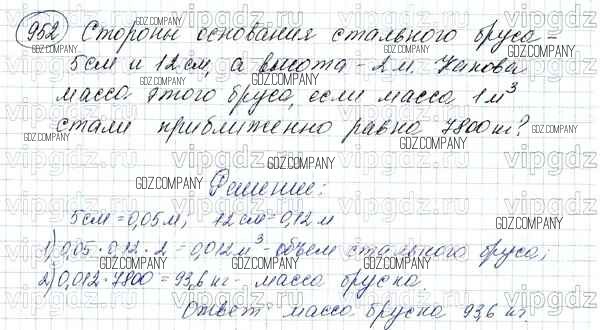 952 Стороны основания стального бруса =
5см и 12см, а высота - 2м. Какова
масса этого бруса, если масса 1м³
стали приближенно равна 7800кг?
Решение:
5см = 0,05м; 12см = 0,12м
1) 0,05 · 0,12 · 2 = 0,012м³ - объем стального бруса;
2) 0,012 · 7800 = 93,6 кг - масса бруска.
Ответ: масса бруска 93,6 кг